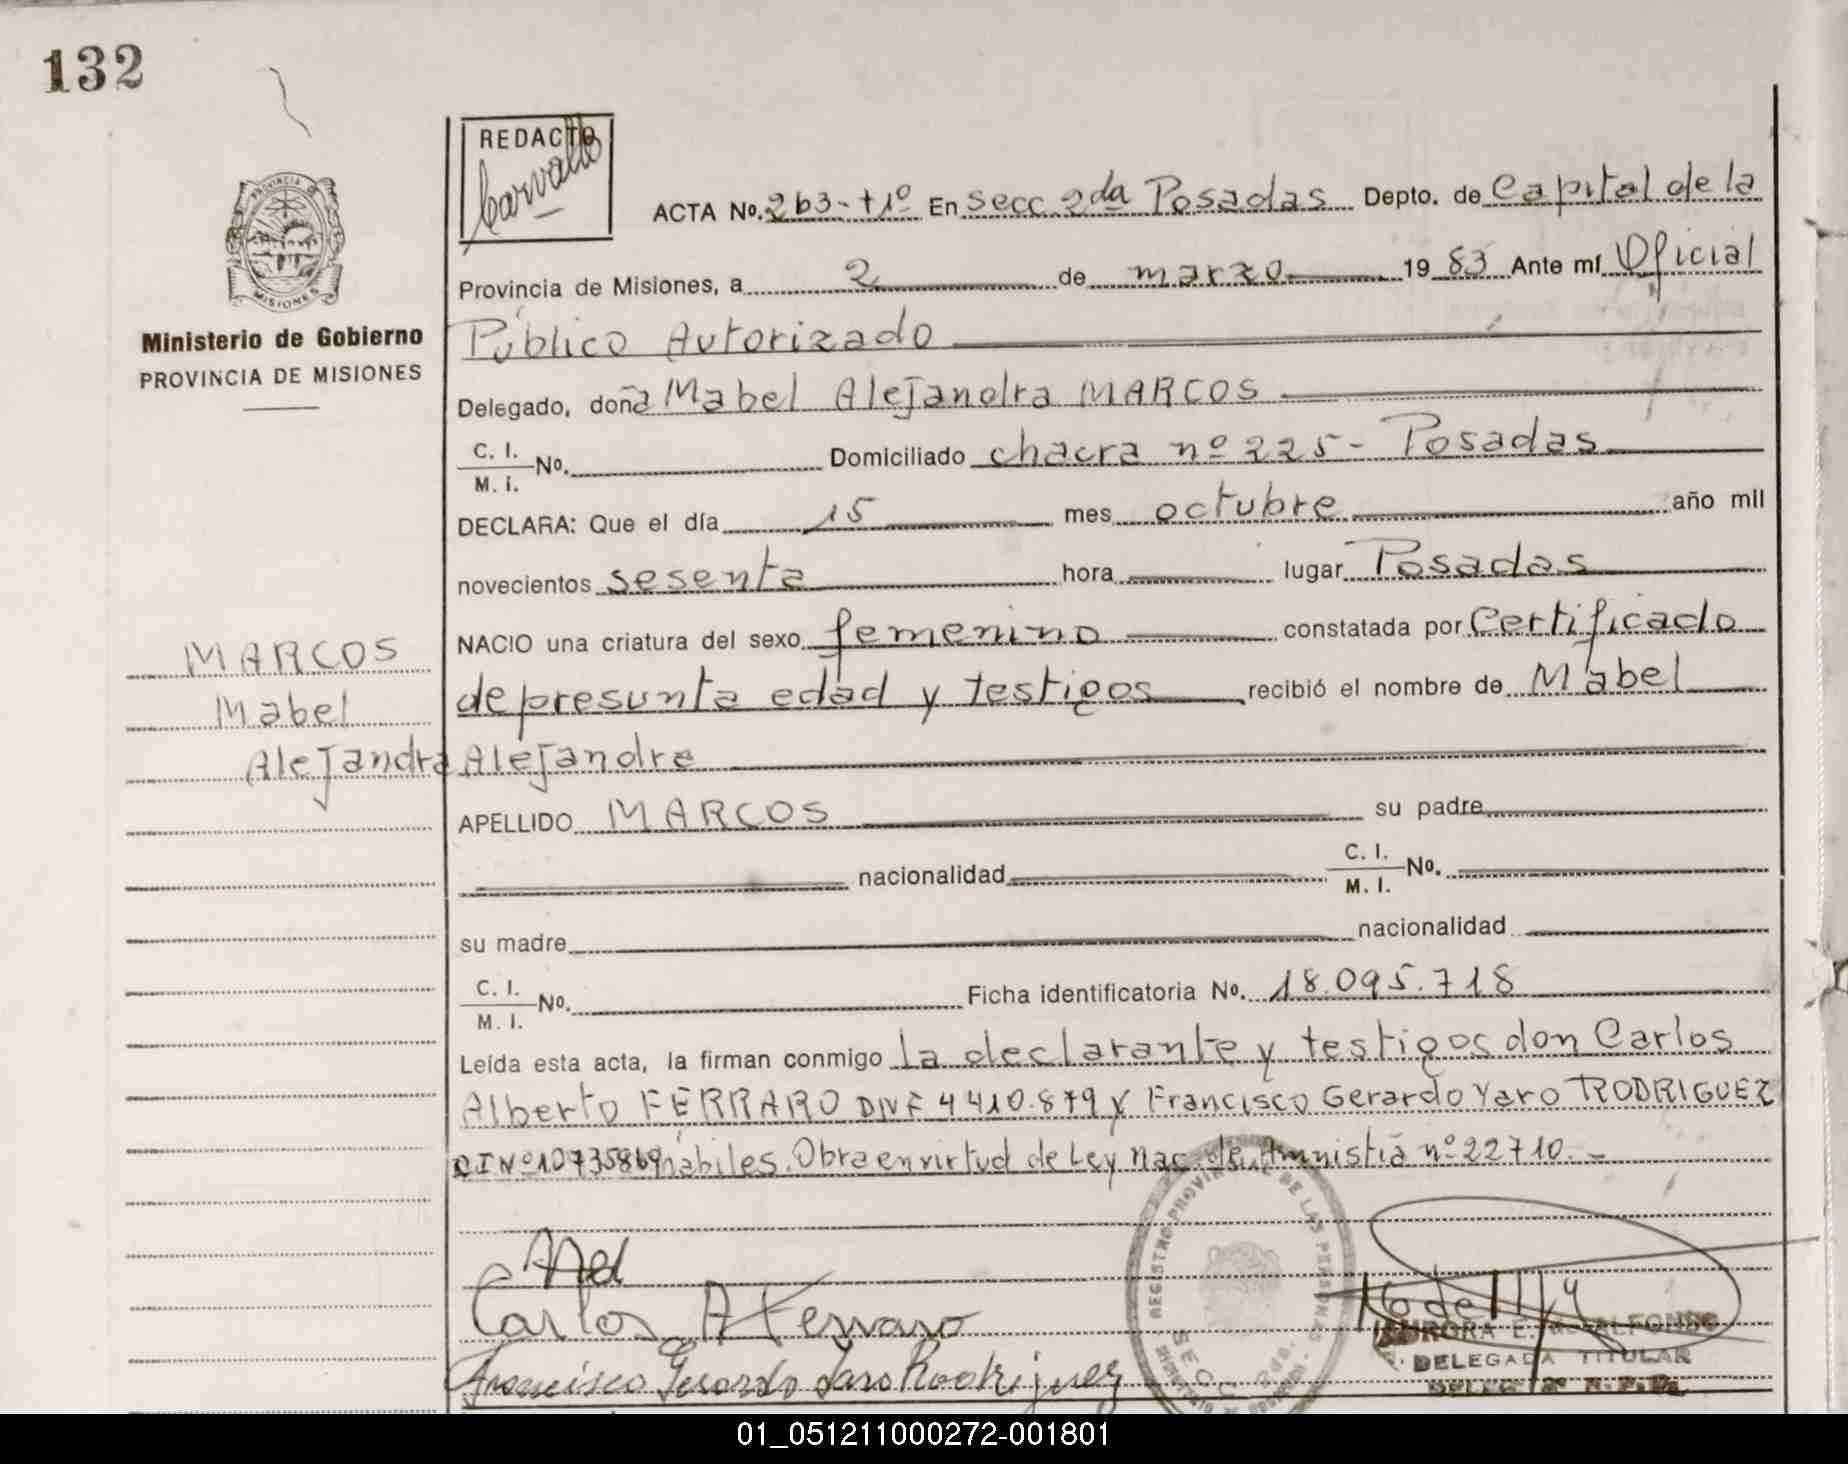 132
REDACTO
Carvallo
ACTA No. 263-t1º En secc. 2da Posadas Depto. de Capital de la
Provincia de Misiones, a 2 de marzo 1983 Ante mí Oficial
PROVINCIA DE
MISIONES
Ministerio de Gobierno
PROVINCIA DE MISIONES
Público Autorizado
Delegado, doña Mabel Alejandra MARCOS
C. I.
M. I. No. Domiciliado chacra nº 225 - Posadas
DECLARA: Que el día 15 mes octubre año mil
novecientos sesenta hora lugar Posadas
NACIO una criatura del sexo femenino constatada por Certificado
MARCOS
de presunta edad y testigos recibió el nombre de Mabel
Mabel
Alejandra
Alejandra
APELLIDO MARCOS su padre
nacionalidad C. I.
M. I. No.
su madre nacionalidad
C. I.
M. I. No. Ficha identificatoria No. 18.095.718
Leída esta acta, la firman conmigo la declarante y testigos don Carlos
Alberto FERRARO DNI 4410.879 y Francisco Gerardo Yaro RODRIGUEZ
CI Nº 10735869 hábiles. Obra en virtud de Ley Nac. de Amnistía nº 22710. -
Carlos A Ferraro
Francisco Gerardo Yaro Rodriguez
REGISTRO PROVINCIAL DE LAS PERSONAS
SECC. 2da.
AURORA E. ALFONSO
DELEGADA TITULAR
01_051211000272-001801